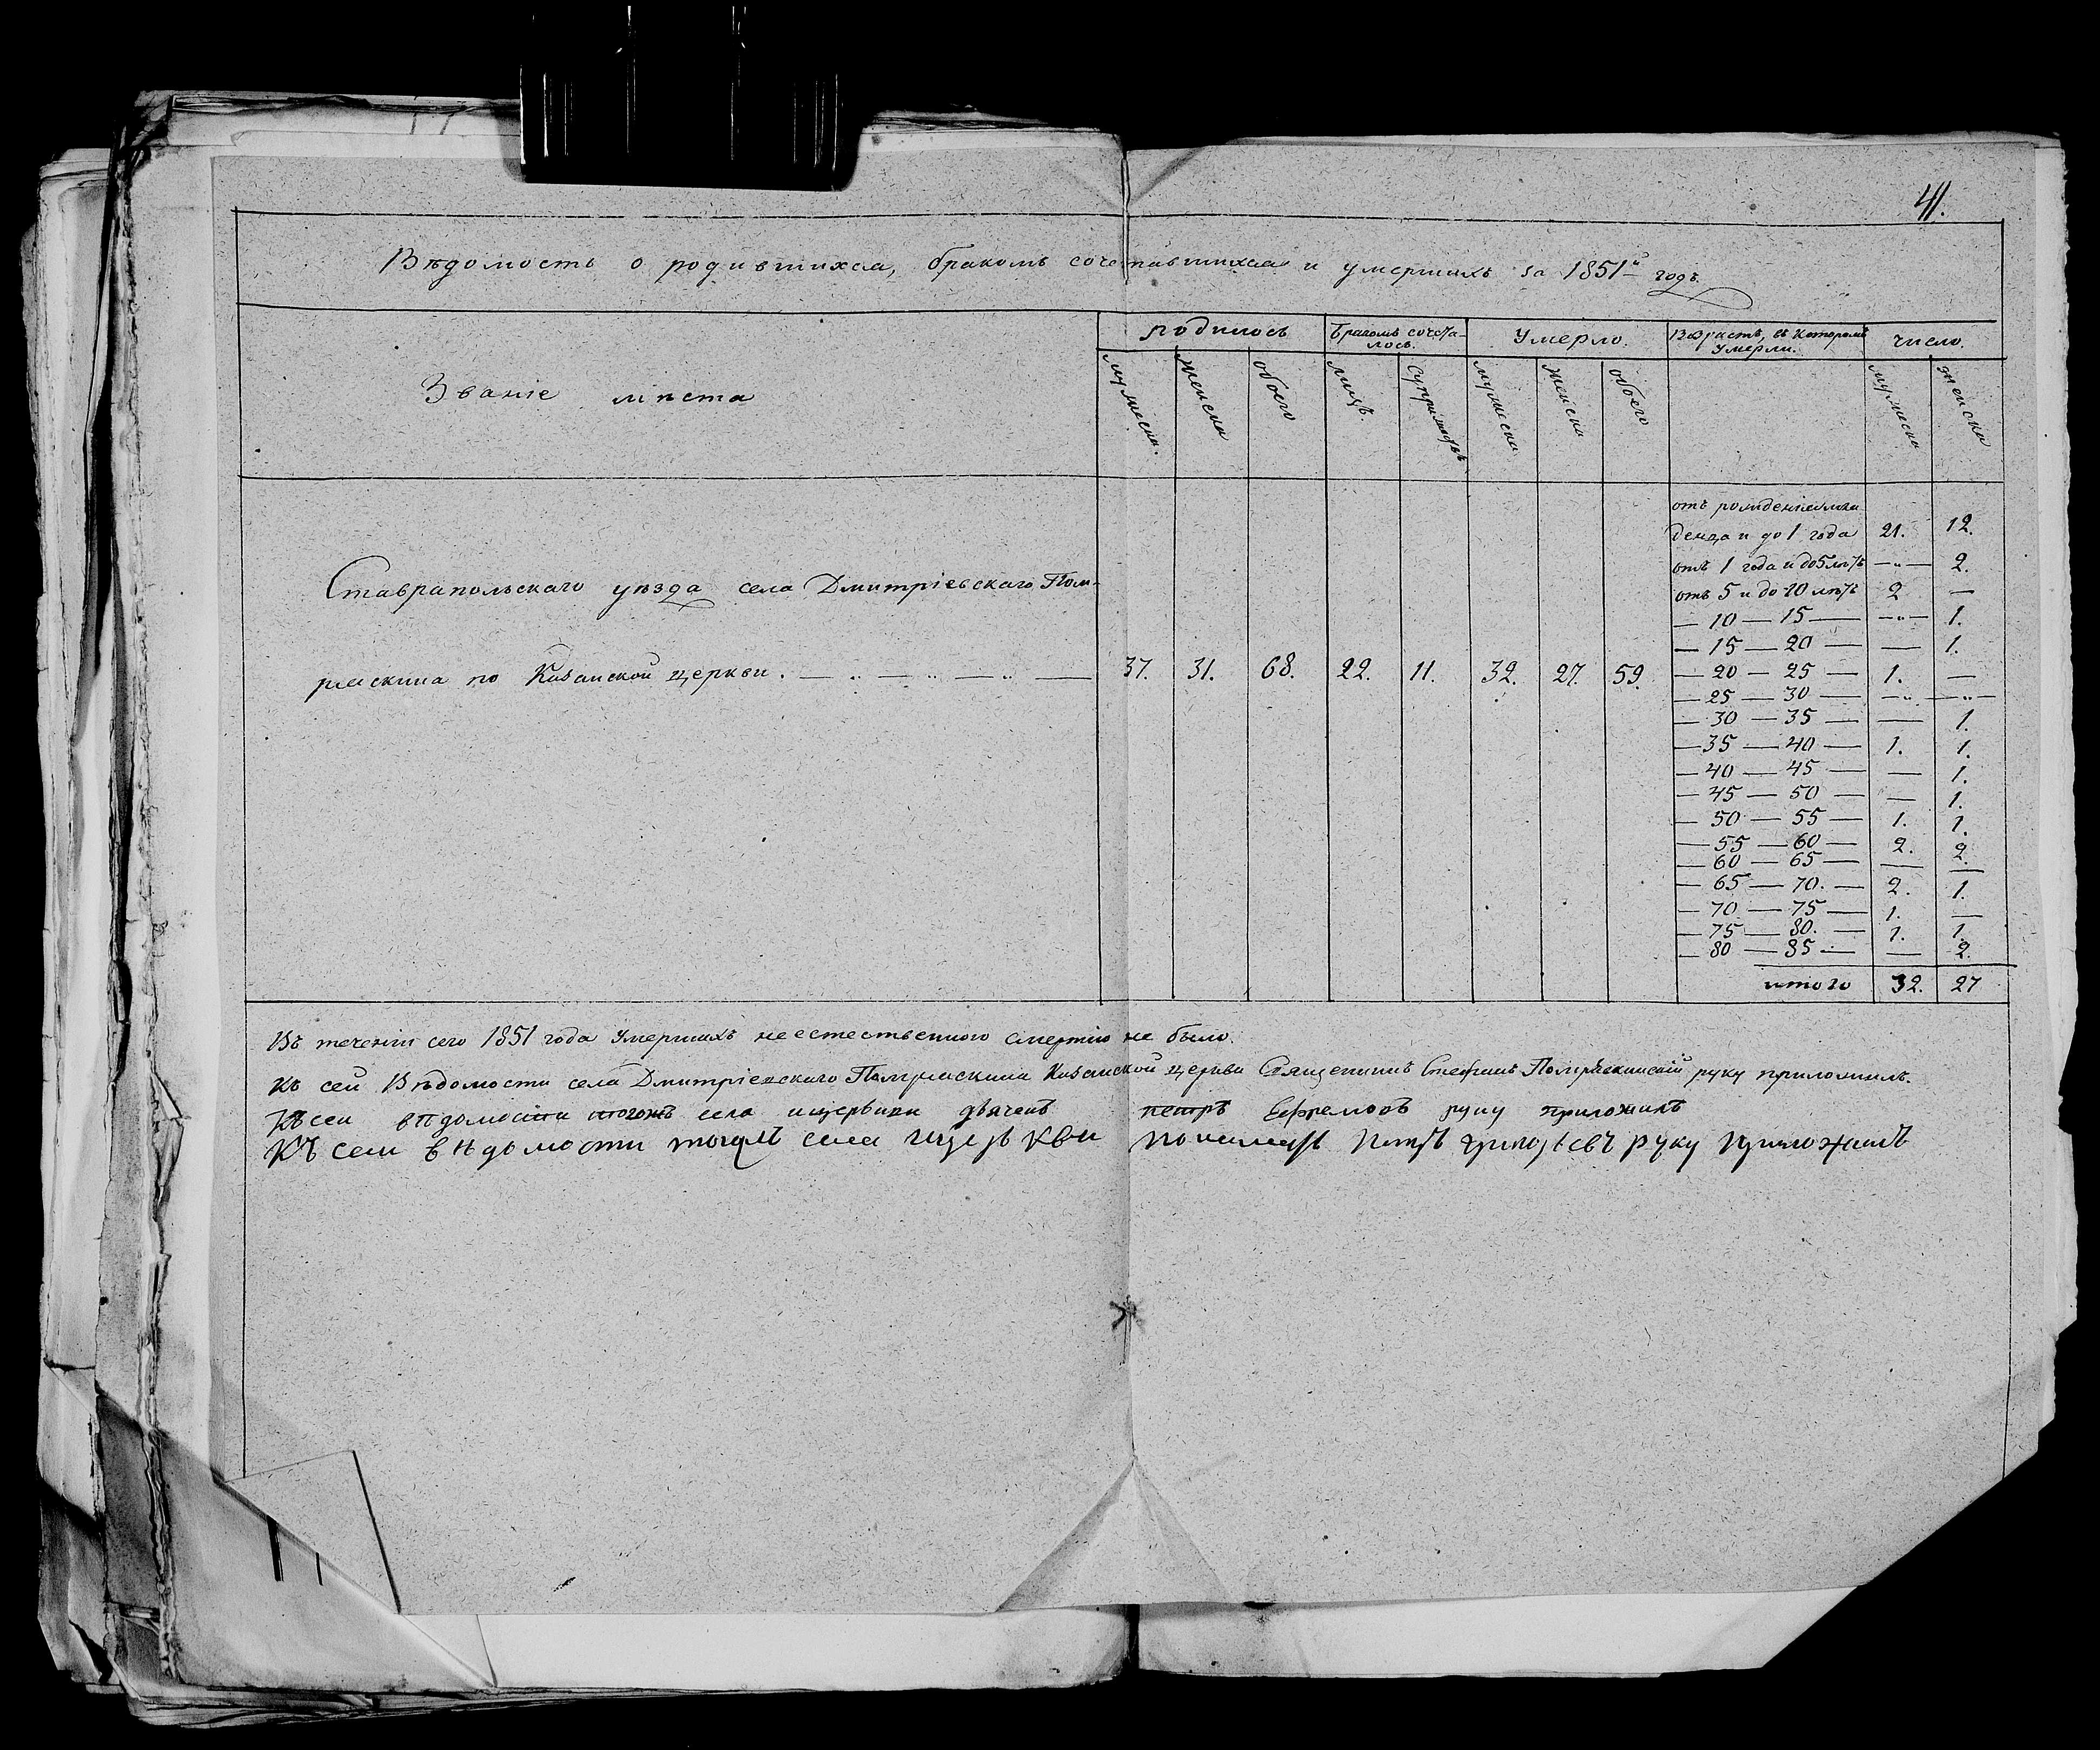 41.
Вѣдомость о родившихся, бракомъ сочетавшихся и умершихъ за 1851й годъ.
Званіе мѣста
родилось
бракомъ сочета-
лось.
Умерло.
Возрастъ, въ которомъ
умерли.
число.
мужеска.
женска
обоего
лицъ.
супружествъ
мужеска
женска
обоего
мужеска
женска
отъ рожденія мла
денца и до 1 года 21. 12.
отъ 1 года и до 5 лѣтъ —„— 2.
отъ 5 и до 10 лѣтъ 2 —
— 10 — 15 — —„— 1.
— 15 — 20 — — 1.
— 20 — 25 — 1. —
— 25 — 30 — —„— —„—
— 30 — 35 — — 1.
— 35 — 40 — 1. 1.
— 40 — 45 — — 1.
— 45 — 50 — — 1.
— 50 — 55 — 1. 1.
— 55 — 60 — 2. 2.
— 60 — 65 — — —
— 65 — 70. — 2. 1.
— 70 — 75 — 1. —
— 75 — 80. — 1. 1.
— 80 — 85 — — 2.
итого 32. 27
Ставрапольскаго уѣзда села Дмитріевскаго Пом-
ряскина по Казанской церкви. — „ — „ — „ — 37. 31. 68. 22. 11. 32. 27. 59.
Въ теченіи сего 1851 года умершихъ неестественною смертію не было.
Къ сей Вѣдомости села Дмитріевскаго Помряскина Казанской церкви Священникъ Стефанъ Помряскинскій руку приложилъ.
Къ сей вѣдомости тогожъ села ицеркви дьячекъ петръ Ефремовъ руку приложилъ
Къ сей вѣдомости тогожъ села ицеркви пономарь руку приложилъ